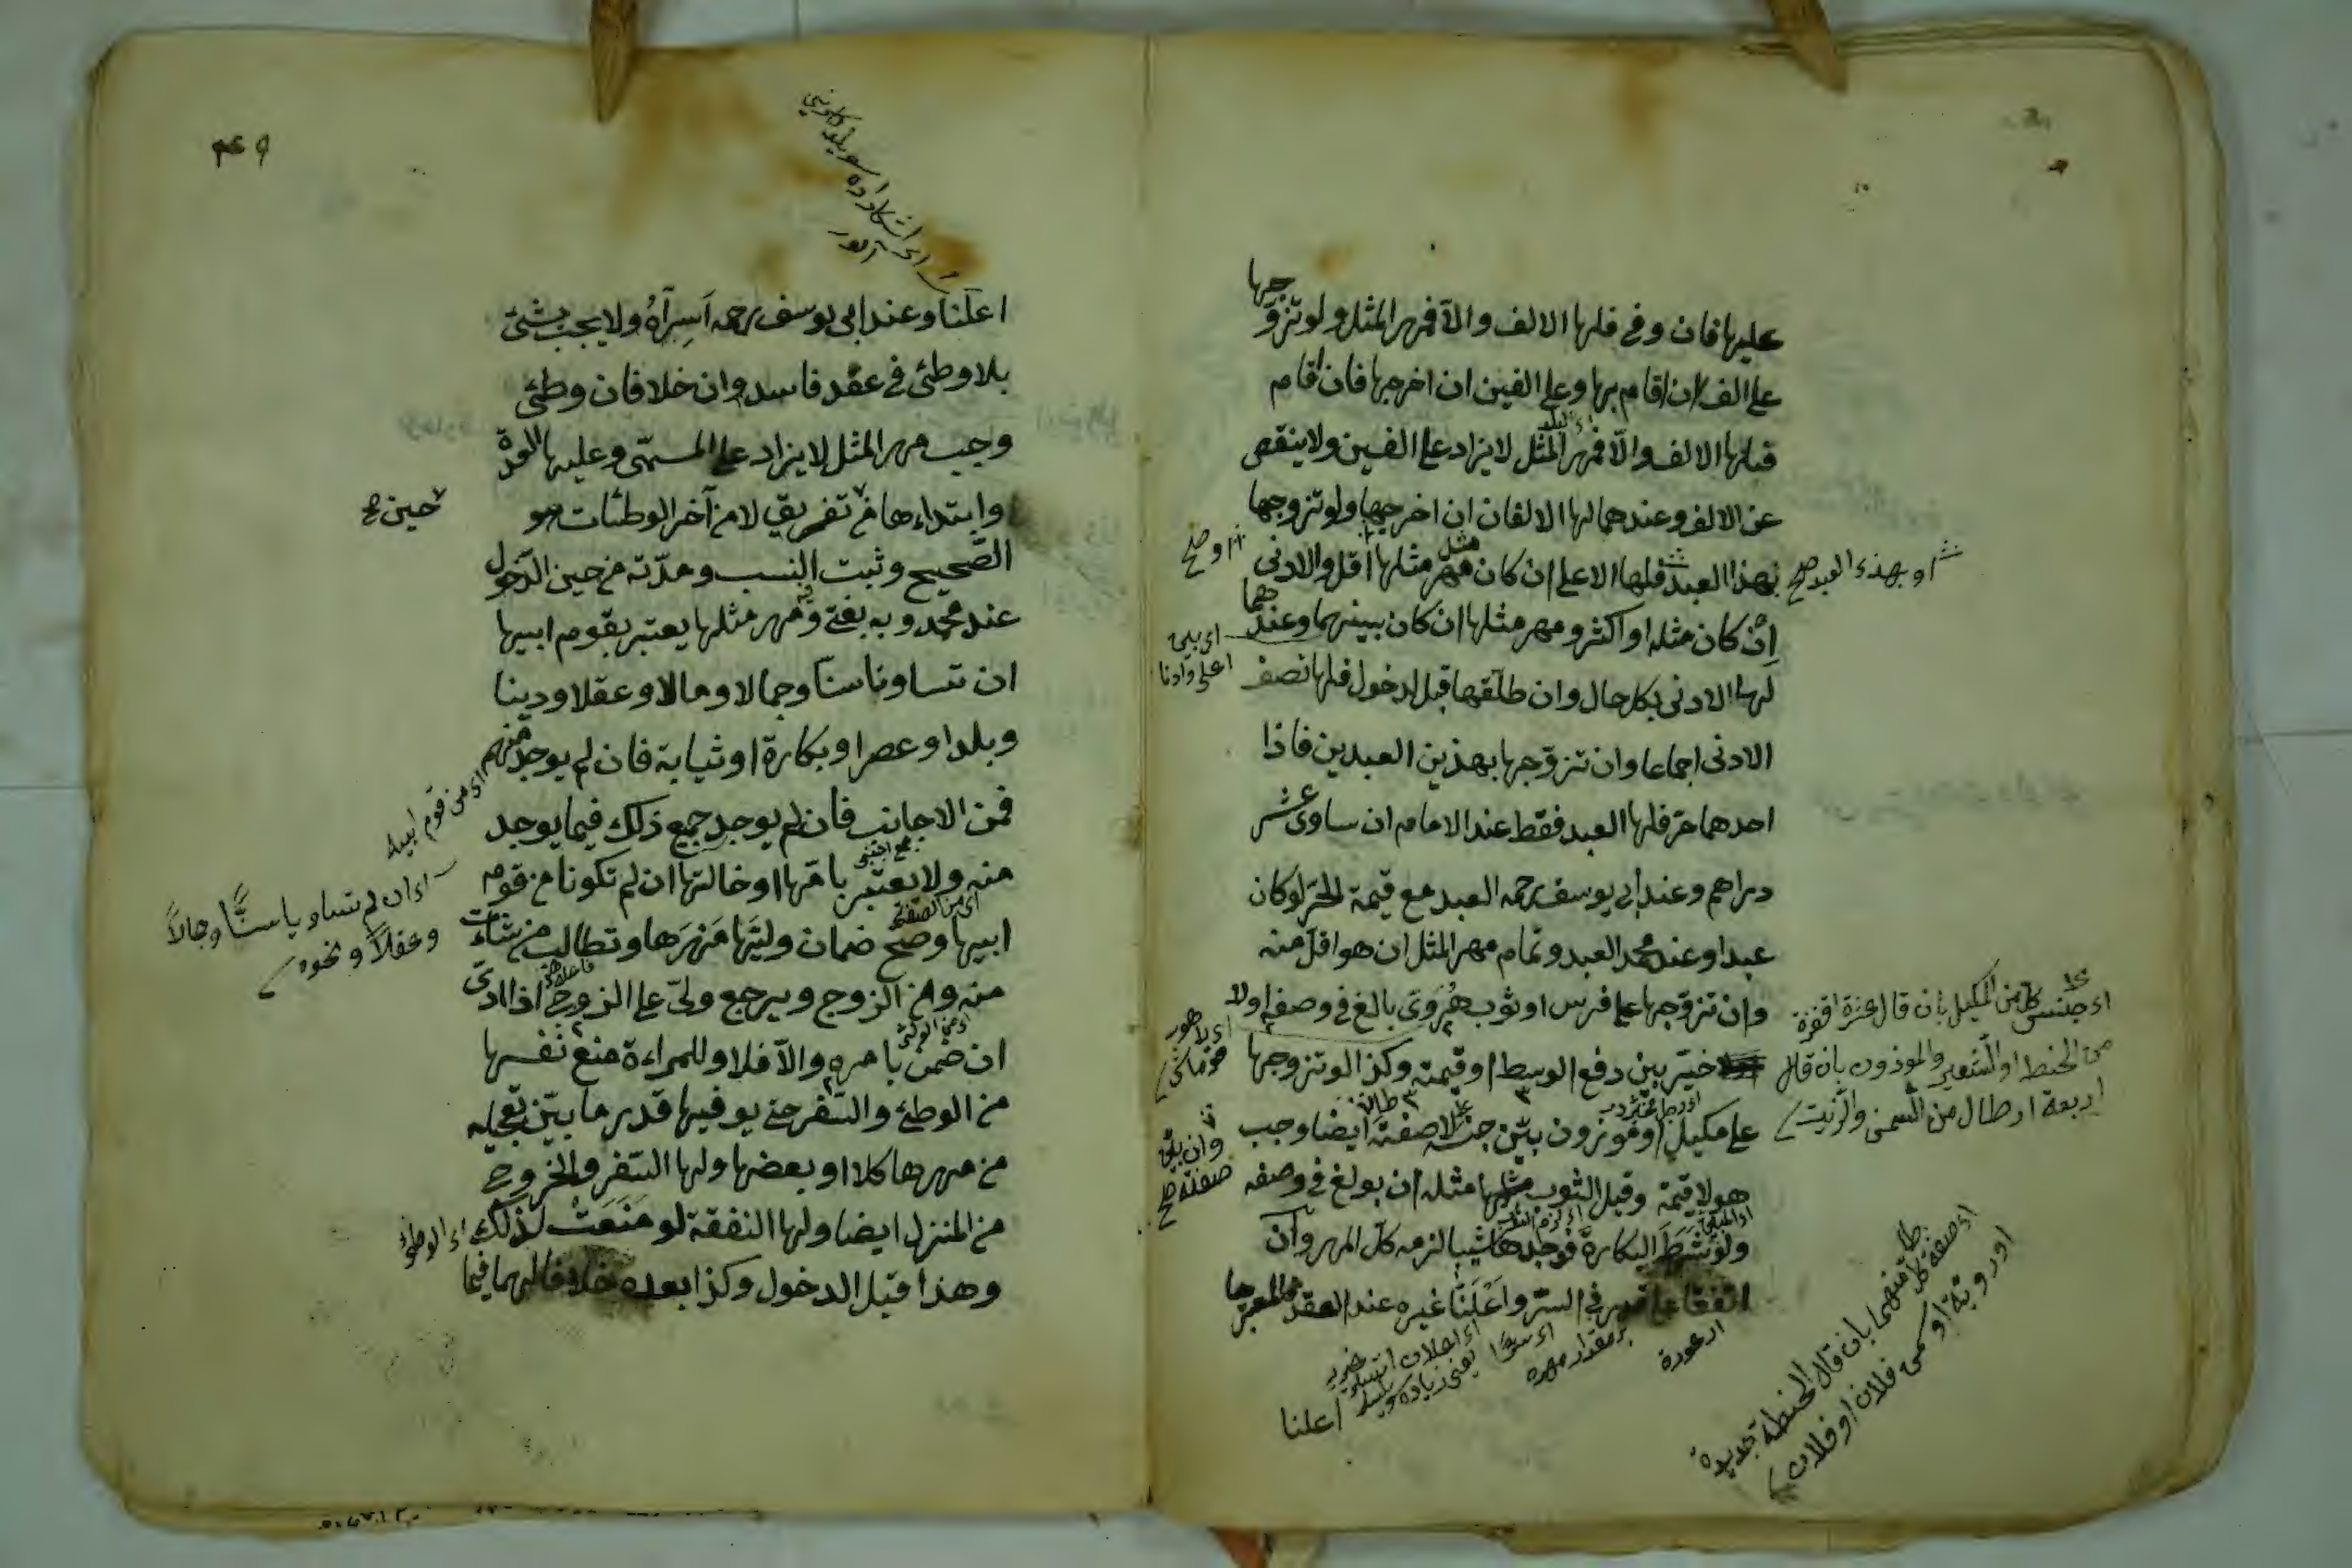 عليها فان وفى فلها الالف والا فمهر المثل ولو تزوجها
على الف ان اقام بها وعلى الفين ان اخرجها فان اقام
فلها الالف والّا فمهر المثل لا يزاد على الفين ولا ينقص
عن الالف وعندهما لها الالفان ان اخرجها ولو تزوجها
بهذا العبد فلها الاعلى ان كان مهر مثلها اقل والادنى
اِنْ كان مثله او اكثر ومهر مثلها ان كان بينهما وعندهما
لها الادنى بكل حال وان طلّقها قبل الدخول فلها نصف
الادنى اجماعا وان تزوّجها بهذين العبدين فاذا
احدهما حرّ فلها العبد فقط عند الامام ان ساوى عشر
دراهم وعند ابى يوسف رحمه العبد مع قيمة الحرّ لو كان
عبدا وعند محمد العبد وتمام مهر المثل ان هو اقلّ منه
وان تزوّجها على فرس او ثوب هَروىّ بالغ فى وصفه او لا
خيّر بين دفع الوسط او قيمته وكذا لو تزوجها
على مكيل او موزون بيّن جنسه لا صفته ايضا وجب
هو لا قيمة وقيل الثوب مثلها مثله ان بولغ فى وصفه
ولو شَرَطَ البكارة فوجدها ثيبا لزمه كلّ المهر وان
اتفقا على قدر فى السرّ واَعْلَنَا غيره عند العقد فالمعبر ما
او بهذا العبد صح
او صح
اى بين
اعلى وادنا
اى جنس كل من المكيل بان قال عشرة اقفزة
من الحنط او الشعير والموذون بان قال
اربعة ارطال من السمن والزيت
وان بيّن
صفته صح
اى صفة كل
منهما بان قال الحنطة جديدة
اعلنا
٤٩
اعلنا وعند ابى يوسف رحمه اَسِرّاهُ ولا يجب بشئ
بلا وطئ فى عقد فاسد وان خلا فان وطئ
وجب مهر المثل لا يزاد على المسمّى وعليها العدّة
وابتداءها من تفريق لا من آخر الوطئات هو
الصّحيح وثبت النسب ومدّته من حين الدّخول
عند محمد وبه يفتى ومهر مثلها يعتبر بقوم ابيها
ان تتساونا سنّا وجمالا ومالا وعقلا ودينا
وبلدا وعصرا وبكارة او ثيابة فان لم يوجد منهم
فمن الاجانب فان لم يوجد جميع ذلك فيما يوجد
منه ولا يعتبر بامّها او خالتها ان لم تكونا من قوم
ابيها وصح ضمان وليّها مَهرَها وتطالب من شاءت
منه ومن الزوج ويرجع ولىّ على الزوج اذا ادى
ان ضمن بامره والّا فلا وللمراءة منع نفسها
من الوطئ والسّفر حتى يوفيها قدر ما بيّن تعجيله
من مهرها كلا او بعضها ولها السّفر والخروج
من المنزل ايضا ولها النفقة لو مَنَعَتْ لذلك
وهذا قبل الدخول وكذا بعده خلافا لهما فيما
حين صح
اى من قوم ابيه
اى ان لم تتساويا سنًّا وجمالاً
وعقلاً ونحوه
اى الوطئ